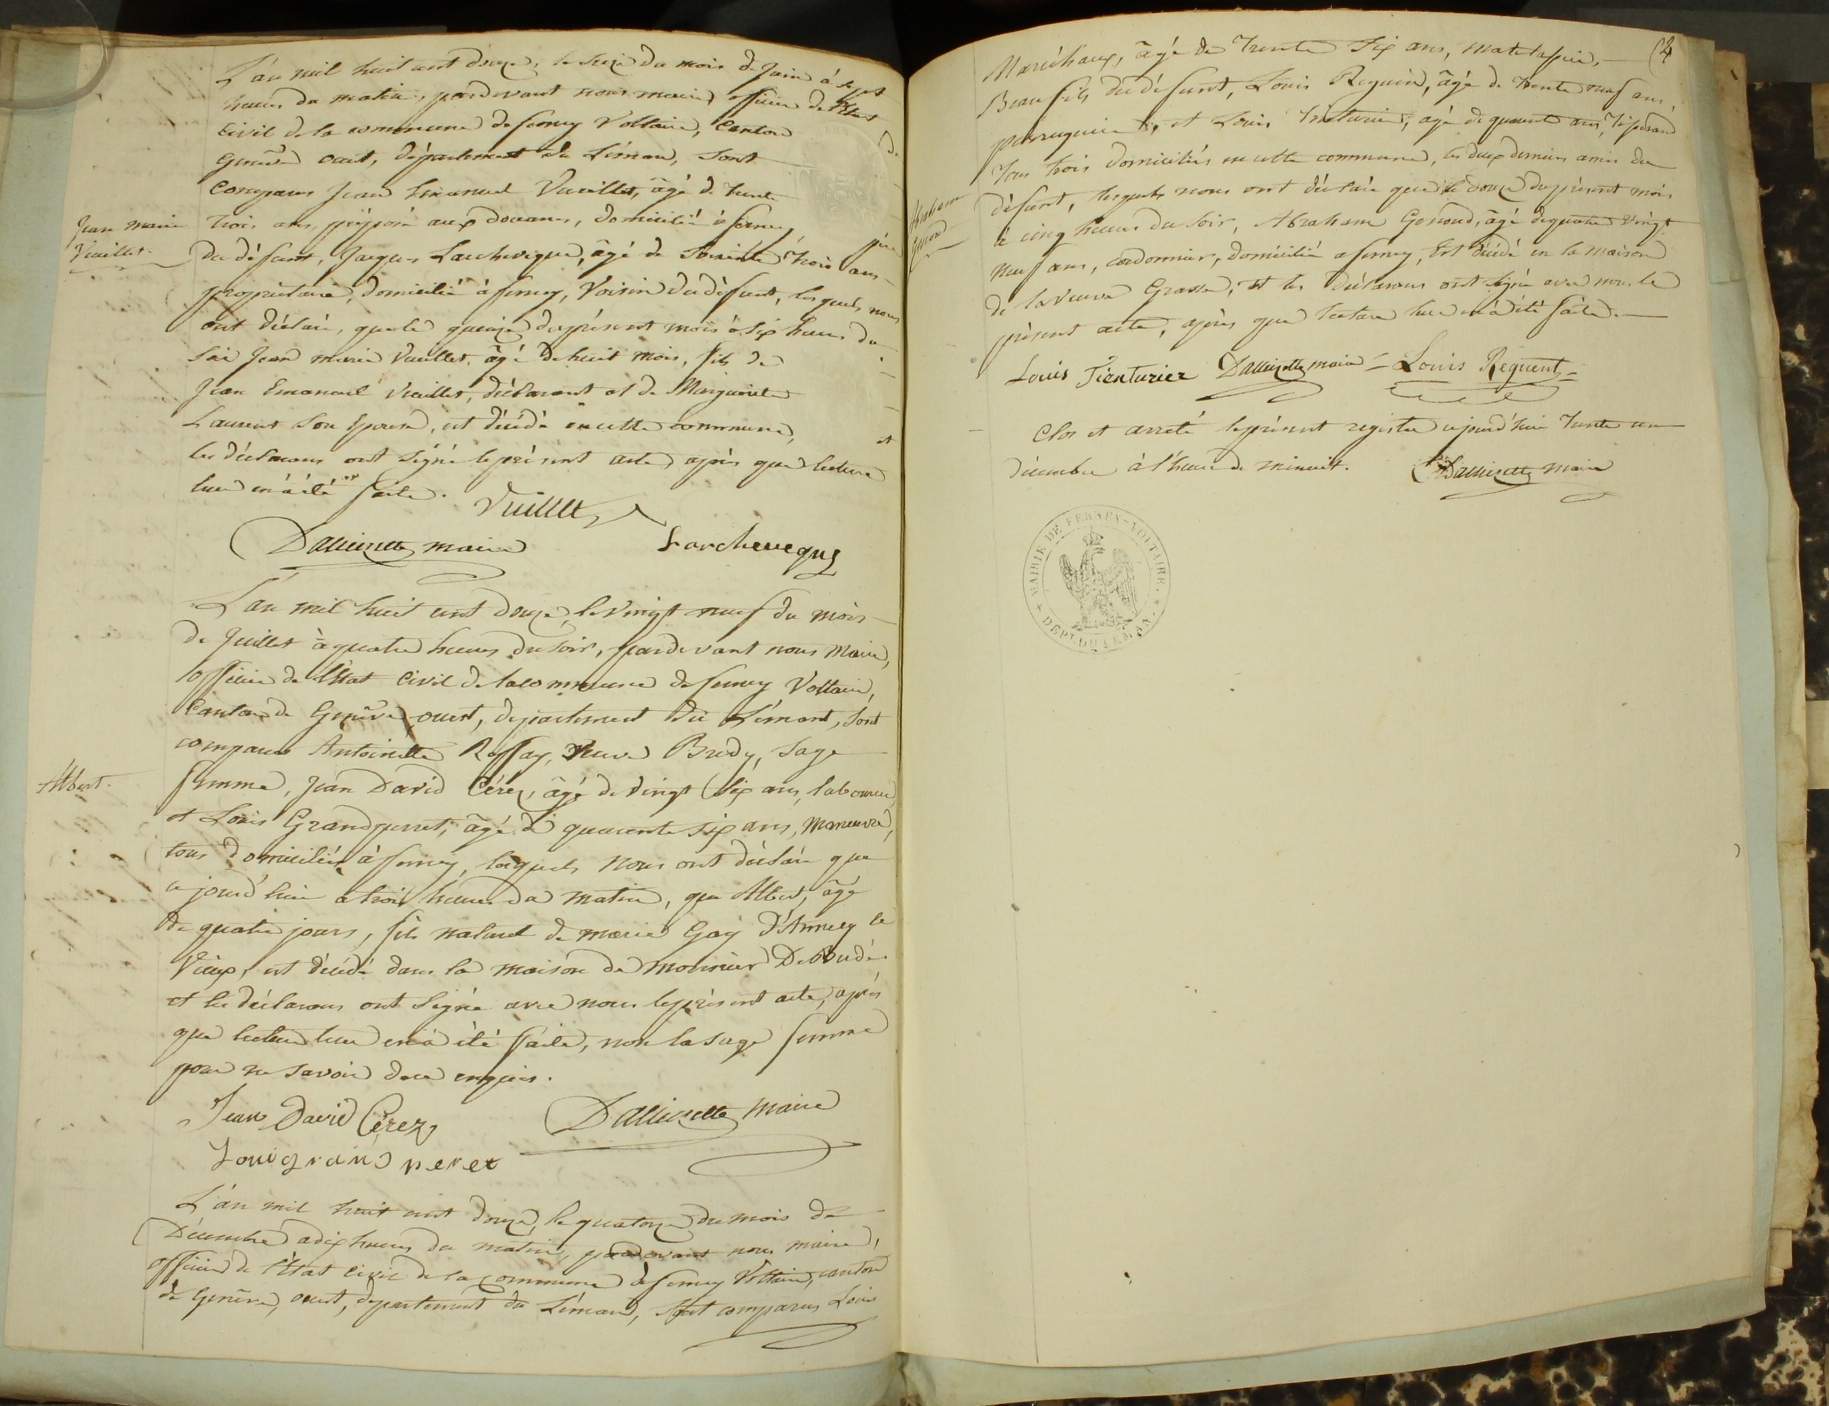 L'an mil huit cent douze, le seize du mois de Juin à sept
heures du matin, pardevant nous maire officier de l'Etat
Civil de la commune de ferney Voltaire, Canton
Genève ouest, département du Léman, sont
Comparus Jean Emanuel Vuillet, âgé de trente
trois ans, préposé aux douanes, domicilié à ferney, père
du défunt, Jaques Larcheveque, âgé de soixante trois ans
propriétaire, domicilié à ferney, Voisin du défunt, lesquels nous
ont déclaré, que le quinze du présent mois à six heures du
soir Jean marie Vuillet, âgé de huit mois, fils de
Jean Emanuel Vuillet, déclarant et de Marguerite
Laurent son épouse, est décédé en cette commune, et
les déclarans ont signé le présent acte, après que lecture
leur en a été faite.
Jean marie
Vuillet.
Vuillet
Dallizette maire
Larcheveque
L'an mil huit cent douze, le vingt neuf du mois
de Juillet à quatre heures du soir, pardevant nous Maire,
officier de l'Etat Civil de la commune de ferney Voltaire,
Canton de Genève, ouest, département du Lémant, sont
comparus Antoinette Roffay, Veuve Brédy, Sage
femme, Jean David Cérez, âgé de vingt six ans, laboureur,
et Louis Grandperret, âgé de quarante six ans, Maneuvre,
tous domiciliés à ferney, lesquels nous ont déclaré que
cejourd'hui à trois heures du matin, que Albert, âgé
de quatre jours, fils naturel de marie Gay d'Annecy le
Vieux, est décédé dans la maison de monsieur DeBudé.
et les déclarans ont signé avec nous le présent acte, après
que lecture leur en a été faite, non la sage femme
pour ne savoir de ce enquise.
Albert.
Jean David Cérez
Dallizette maire
Louis grand peret
L'an mil huit cent douze, le quatorze du mois de
Décembre à dix heures du matin, pardevant nous maire,
officier de l'Etat civil de la Commune de ferney Voltaire, canton
de Genève, ouest, département du Léman, sont comparus Louis
Maréchaux, âgé de trente six ans, matelassier,
Beau fils du défunt, Louis Requin, âgé de trente neuf ans,
perruquier, et Louis Tinturier, âgé de quarante ans, Tisserand
tous trois domiciliés en cette commune, les deux derniers amis du
défunt, lesquels nous ont déclaré que le douze du présent mois
à cinq heures du soir, Abraham Genoud, âgé de quatre vingt
neuf ans, cordonnier, domicilié à ferney, est décédé en la maison
de la veuve Grasse, et les déclarans ont signé avec nous le
présent acte, après que lecture leur en a été faite.
Abraham
Genoud
Louis Tienturier Dallizette maire Louis Requent
Clos et arreté le présent registre cejourd'hui trente un
décembre à l'heure de minuit. Dallizette maire
MAIRIE DE FERNEY-VOLTAIRE
DEPT. DU LÉMAN